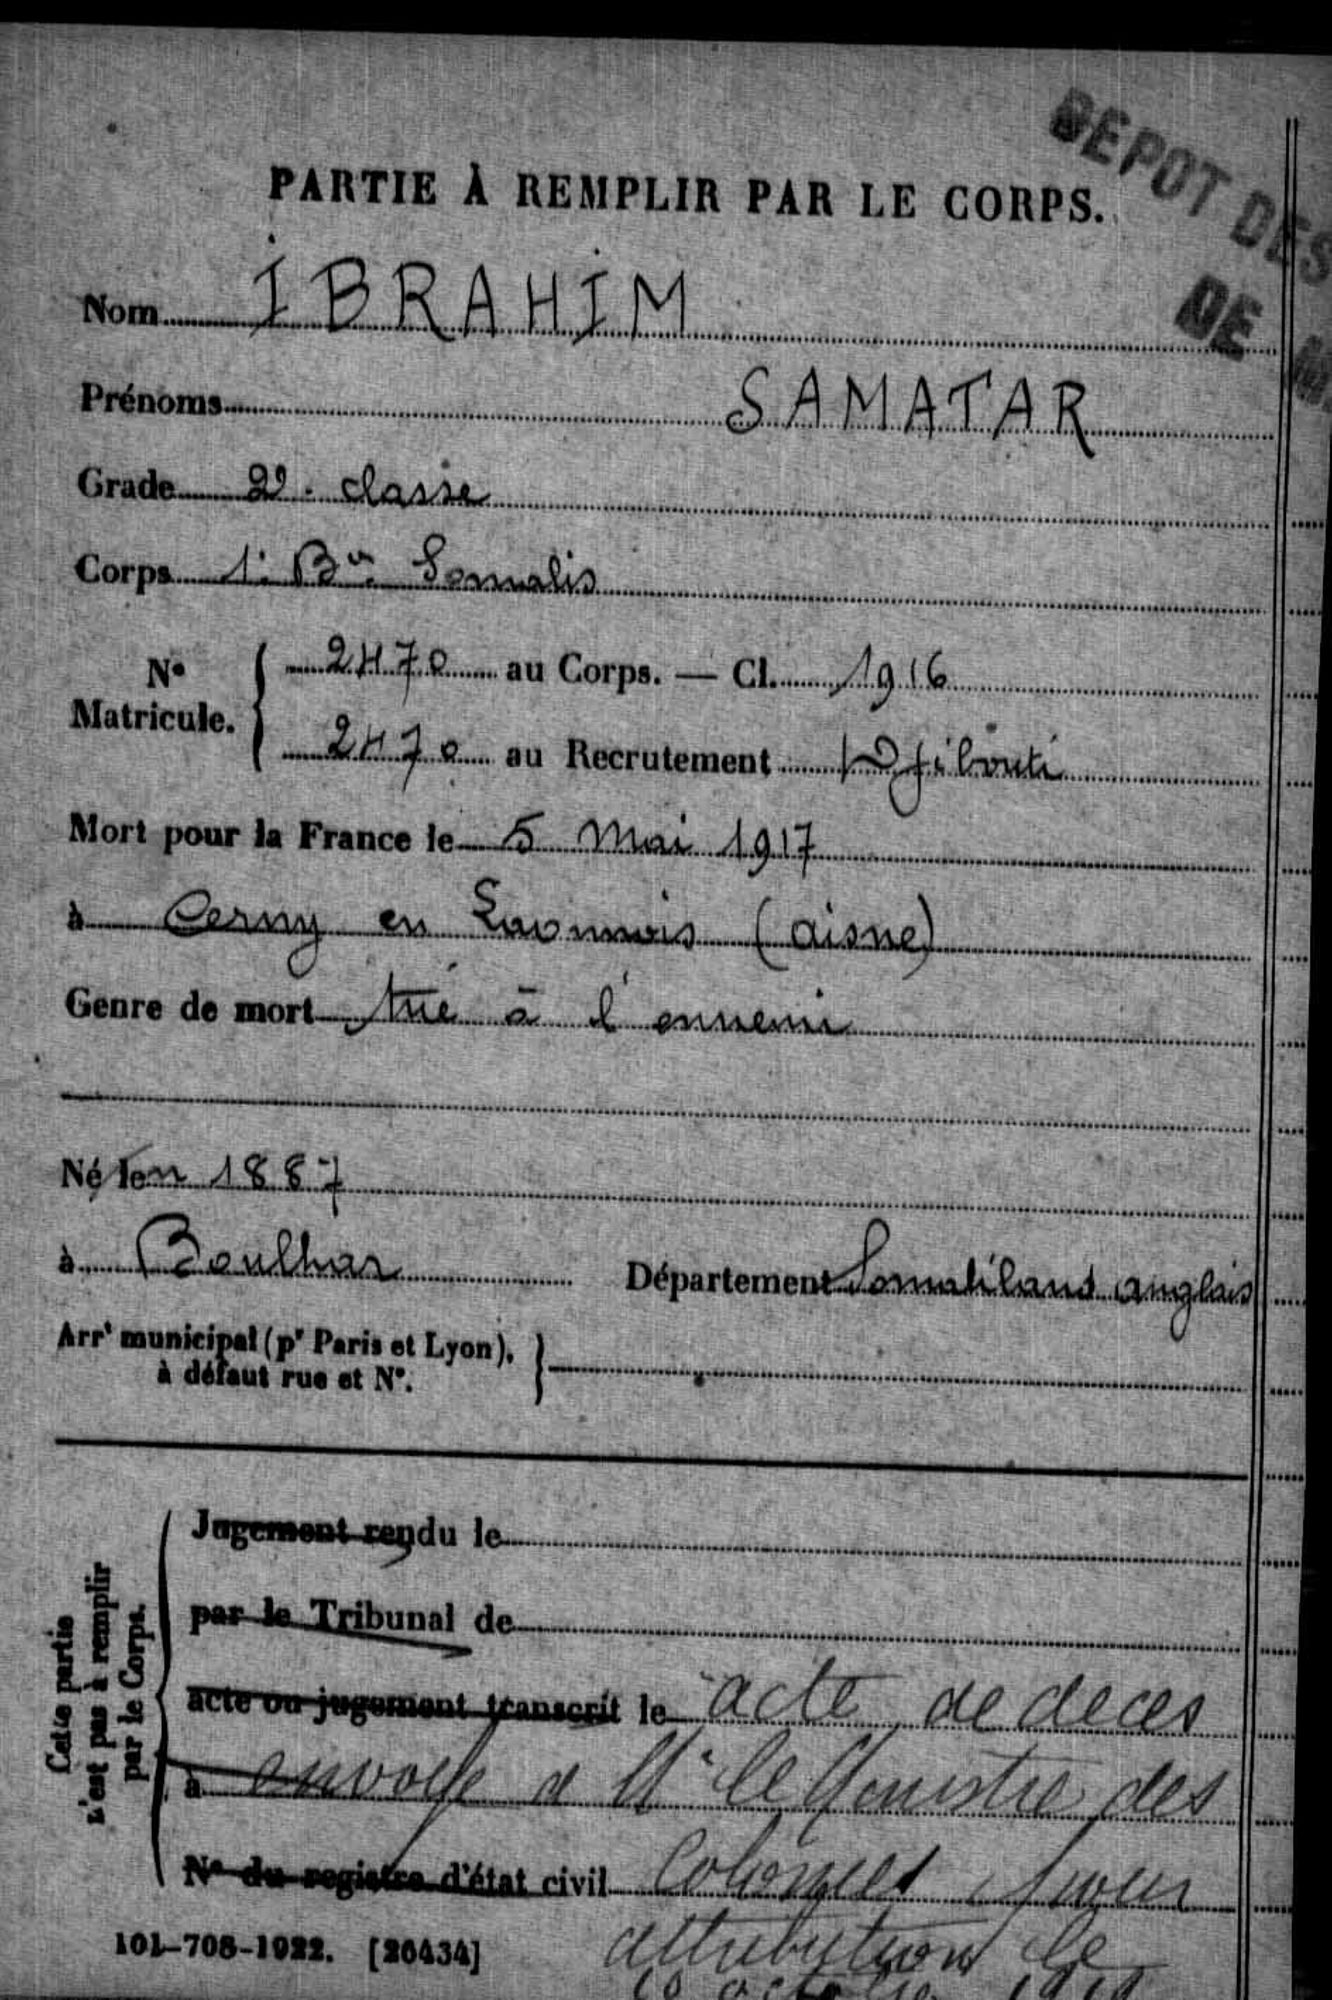 DEPOT DES
DE M
PARTIE À REMPLIR PAR LE CORPS.
Nom IBRAHIM
Prénoms SAMATAR
Grade 2e. classe
Corps 1e Bn Somalis
No Matricule. { 2470 au Corps. — Cl. 1916
2470 au Recrutement Djibouti
Mort pour la France le 5 Mai 1917
à Cerny en Laonnois (Aisne)
Genre de mort tué à l'ennemi
Né en 1887
à Boulhar Département Somaliland anglais
Arrt municipal (pr Paris et Lyon),
à défaut rue et No.
Cette partie
n'est pas à remplir
par le Corps.
Jugement rendu le
par le Tribunal de
acte ou jugement transcrit le acte de deces
à envoyé a Mr le Ministre des
No du registre d'état civil Colonies pour
101-708-1922. [26434] attribution le
octobre 1919